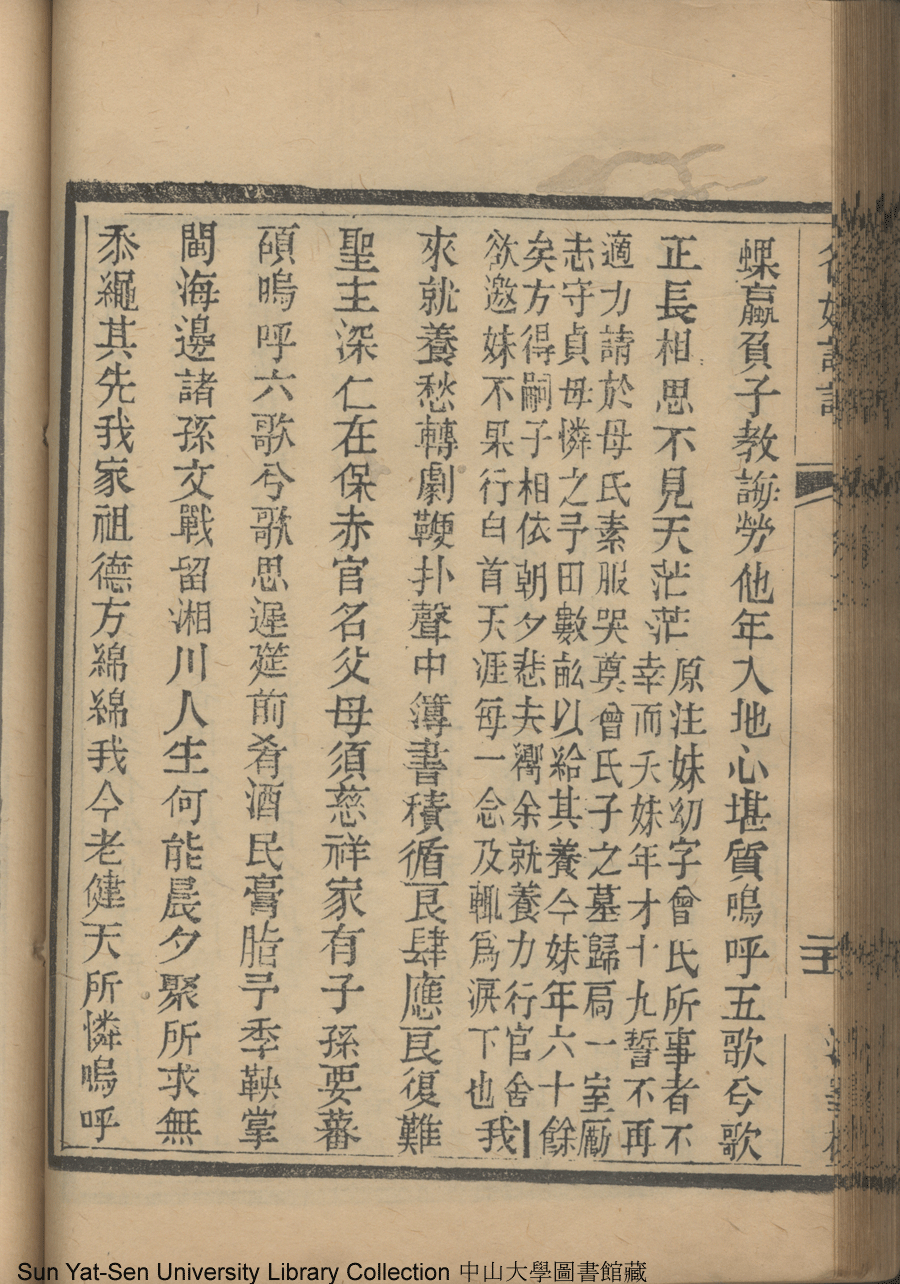 蜾蠃負子教誨勞他年入地心堪質嗚呼五歌兮歌
正長相思不見天茫茫
原注妹幼字曾氏所事者不
幸而夭妹年才十九誓不再
適力請於母氏素服哭奠曾氏子之墓歸扃一室勵
志守貞母憐之予田數畝以給其養今妹年六十餘
矣方得嗣子相依朝夕悲夫嚮余就養力行官舍
欲邀妹不果行白首天涯每一念及輒爲淚下也
我
來就養愁轉劇鞭扑聲中簿書積循良肆應良復難
聖主深仁在保赤官名父母須慈祥家有子孫要蕃
碩嗚呼六歌兮歌思遲筵前肴酒民膏脂予季鞅掌
閩海邊諸孫文戰留湘川人生何能晨夕聚所求無
忝繩其先我家祖德方綿綿我今老健天所憐嗚呼
Sun Yat-Sen University Library Collection 中山大學圖書館藏